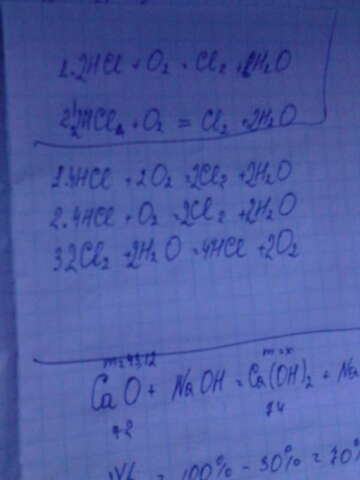 1. 2HCl + O₂ = Cl₂ + 2H₂O
HCl + O₂ = Cl₂ + 2H₂O
1. 4HCl + 2O₂ = 2Cl₂ + 2H₂O
2. 4HCl + O₂ = 2Cl₂ + 2H₂O
3 2Cl₂ + 2H₂O = 4HCl + 2O₂
m=x
CaO + NaOH = Ca(OH)₂ +
74
= 100% - 30% = 70%